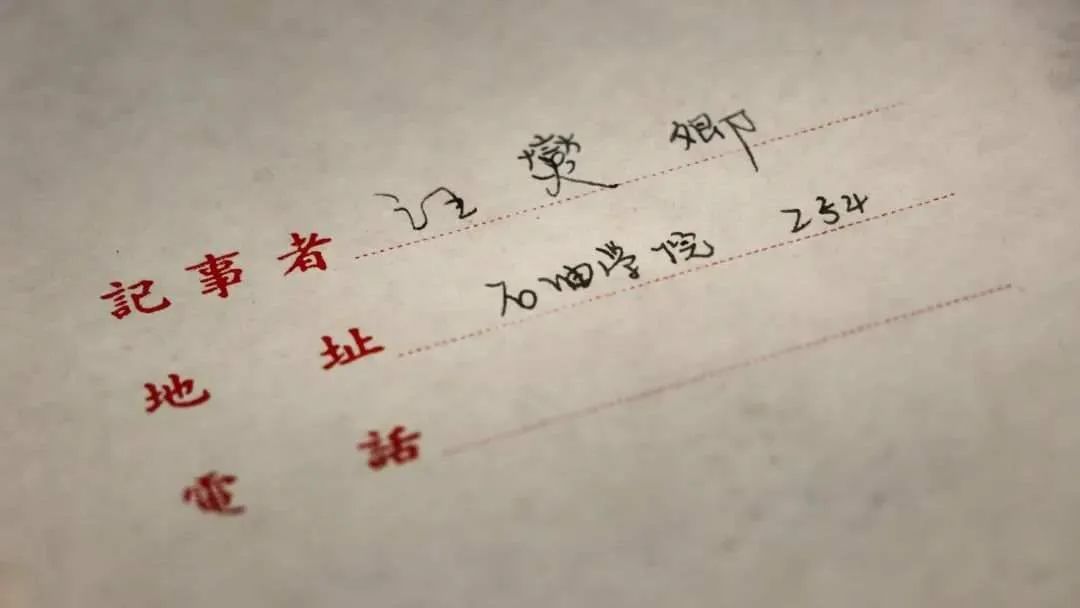 記事者 汪燮卿
地址 石油学院 234
電話